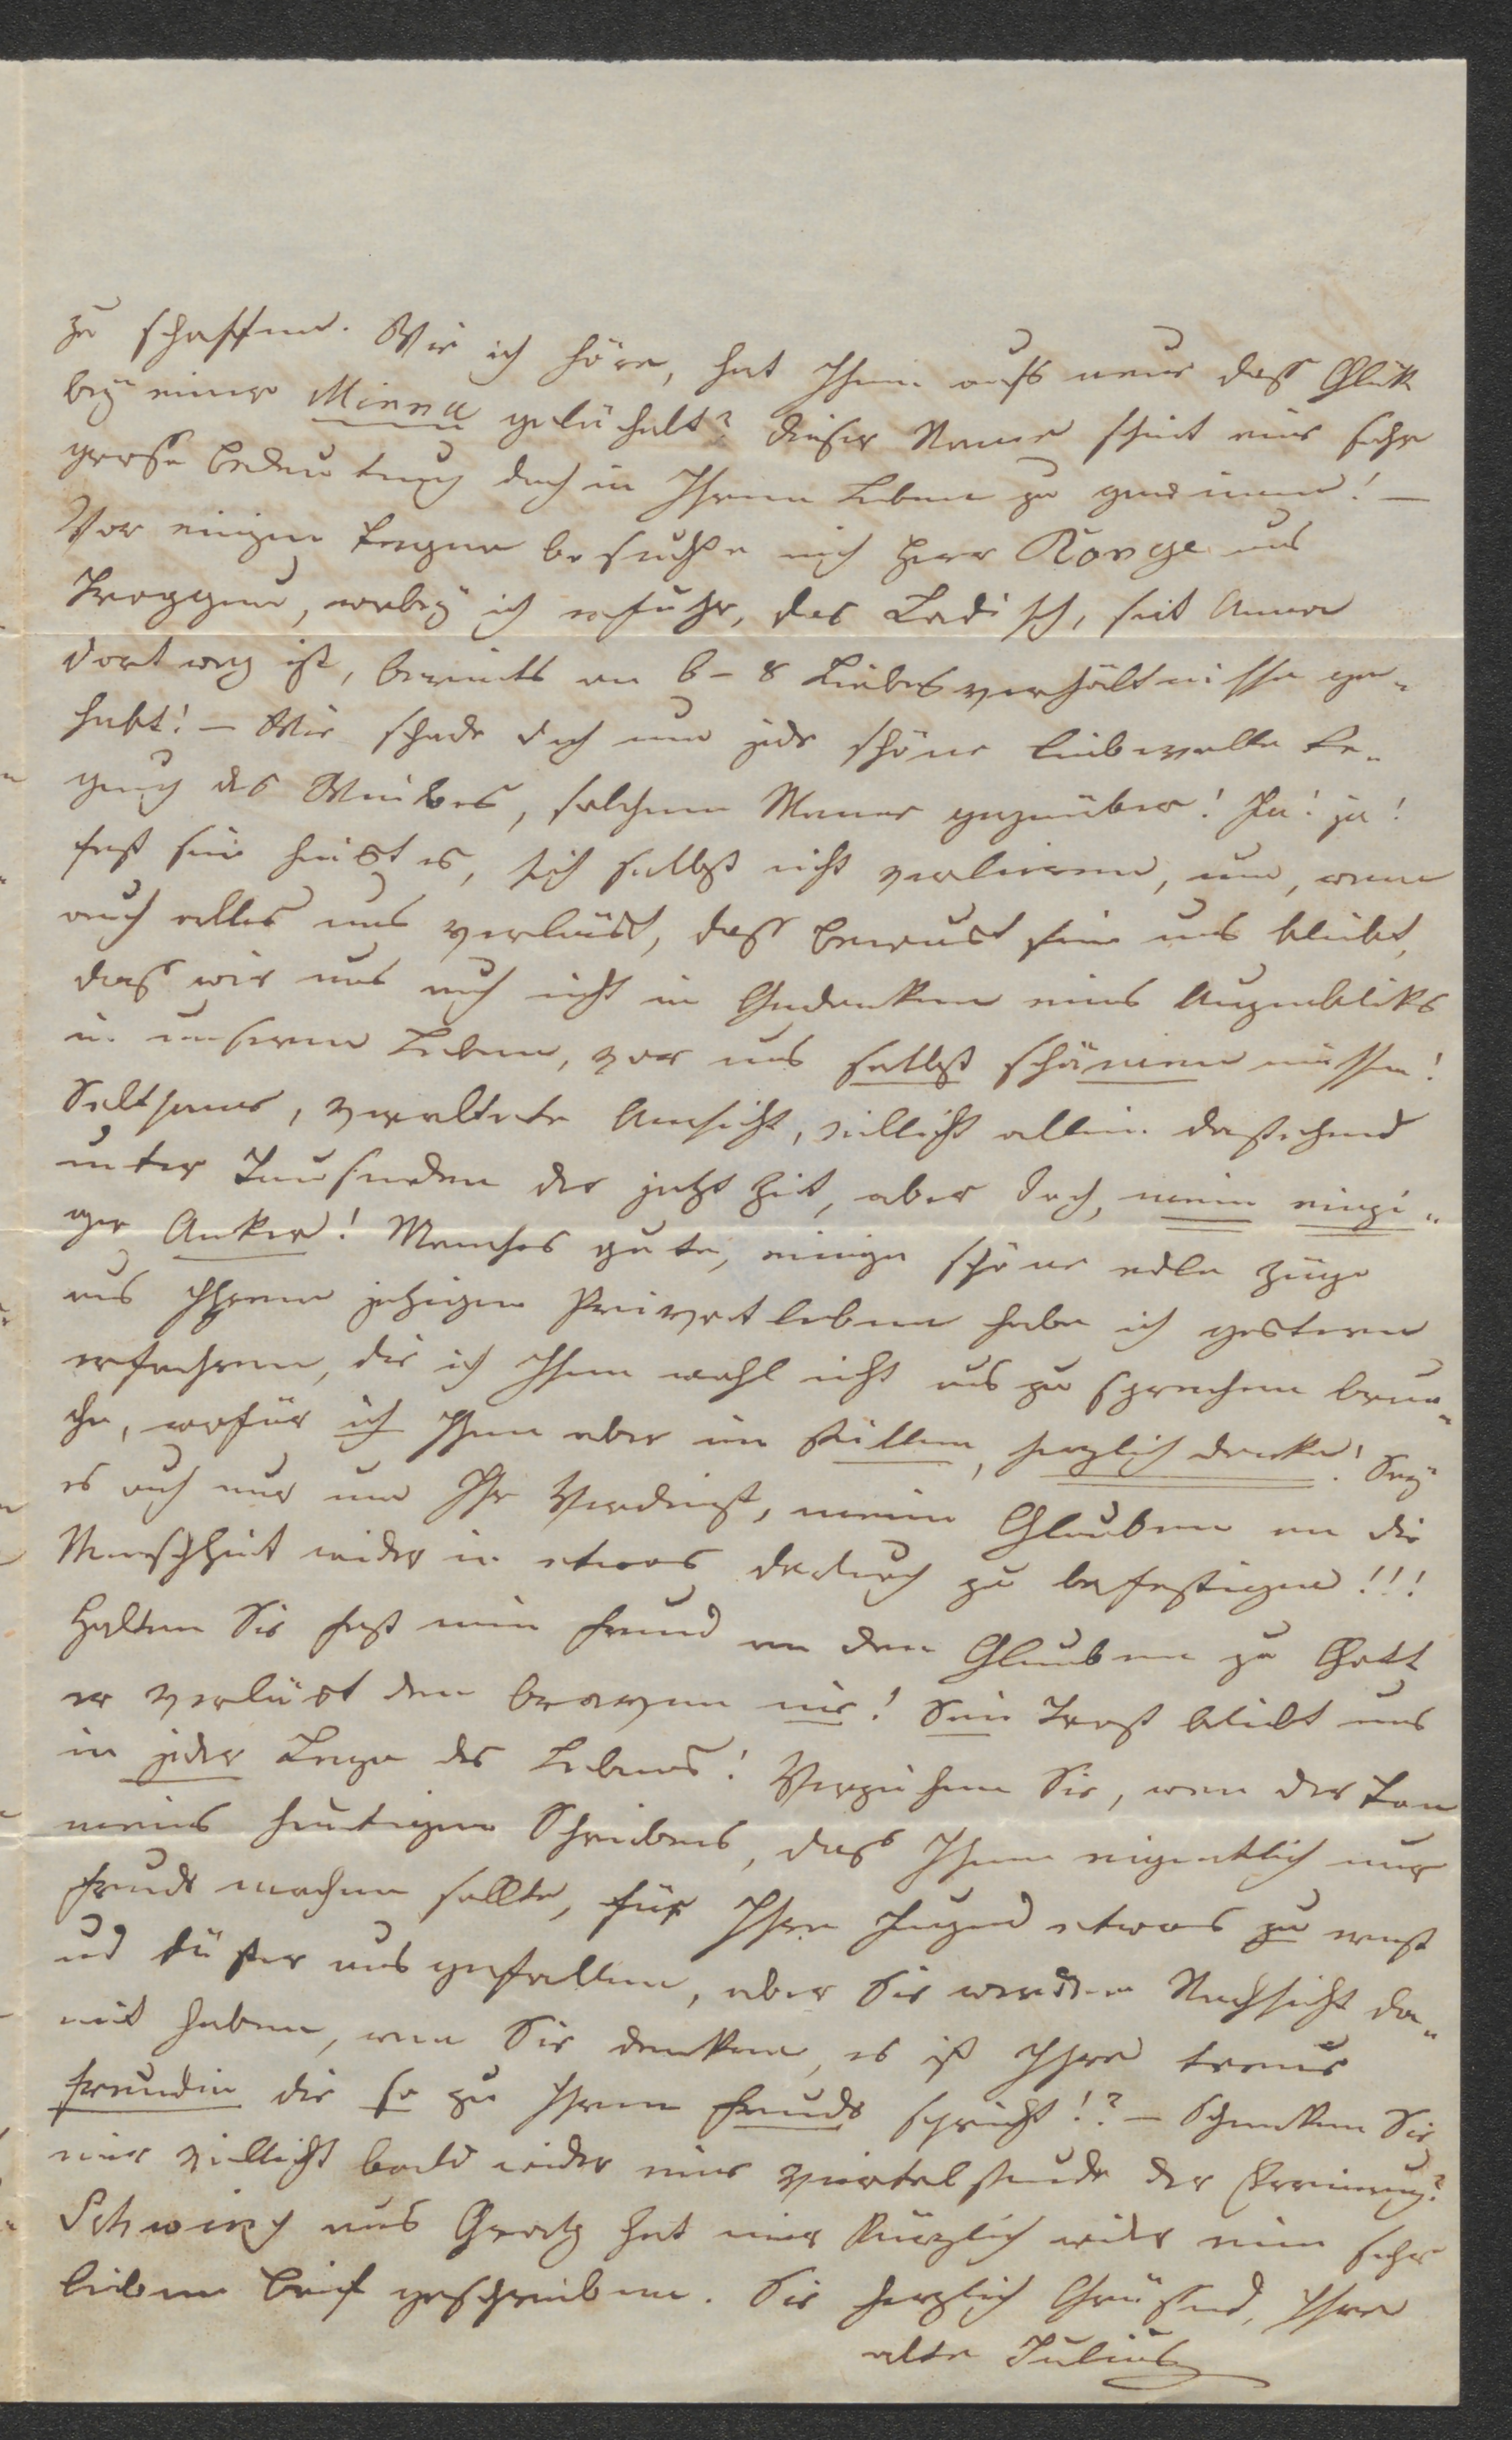 zu schaffen. Wie ich höre, hat Ihnen aufs neue dass Glük
bey einer Minna gelächelt? dieser Name scheint eine sehr
grosse bedeutung doch in Ihrem Leben zu gewinnen! —
Vor einigen tagen besuchte mich Herr Ronge aus
Troggen, wobey ich erfuhr, das Ladisch, seit Anna
dort weg ist, bereits an 6 - 8 Liebesverhältnisse ge-
habt! — Wie schade doch um jede schöne liebevolle Re-
gung des Weibes, solchem Manne gegenüber! Ja! ja!
fest sein heist es, sich selbst nicht verlieren, um, wenn
auch alles uns verläst, dass bewust sein uns bleibt,
dass wir uns auch nicht im Gedanken eines Augenbliks
in unserem Leben, vor uns selbst schämen müssen!
Seltsame, veraltete Ansicht, villeicht allein dastehend
unter Tausenden der jetzt Zeit, aber doch, mein einzi-
ger Anker! Manches gute, einige schöne edle Züge
aus Ihrem jetzigen Privatleben habe ich gestern
erfahren, die ich Ihnen wohl nicht aus zu sprechen brau-
che, wofür ich Ihnen aber im stillen, herzlich danke! Sey
es auch nur um Ihr Verdienst, meinen Glauben an die
Menschheit wieder in etwas dadurch zu befestigen!!!
Halten Sie fest mein freund an den Glauben zu Gott
er verläst den braven nie! Sein Trost bleibt uns
in jeder Lage des Lebens! Verzeihen Sie, wen der Ton
meines heutigen Schreibens, dass Ihnen eigentlich nur
freude machen sollte, für Ihre Jugend etwas zu ernst
und düster ausgefallen, aber Sie werden Nachsicht da-
mit haben, wen Sie denken, es ist Ihre treue
freundin die so zu Ihrem freunde spricht!? — Schenken Sie
mir villeicht bald wieder eine viertelstunde der Erinnerung?
Schwing aus Gratz hat mir kürzlich wieder einen sehr
lieben brief geschrieben. Sie herzlich Grüssend, Ihre
alte Julius